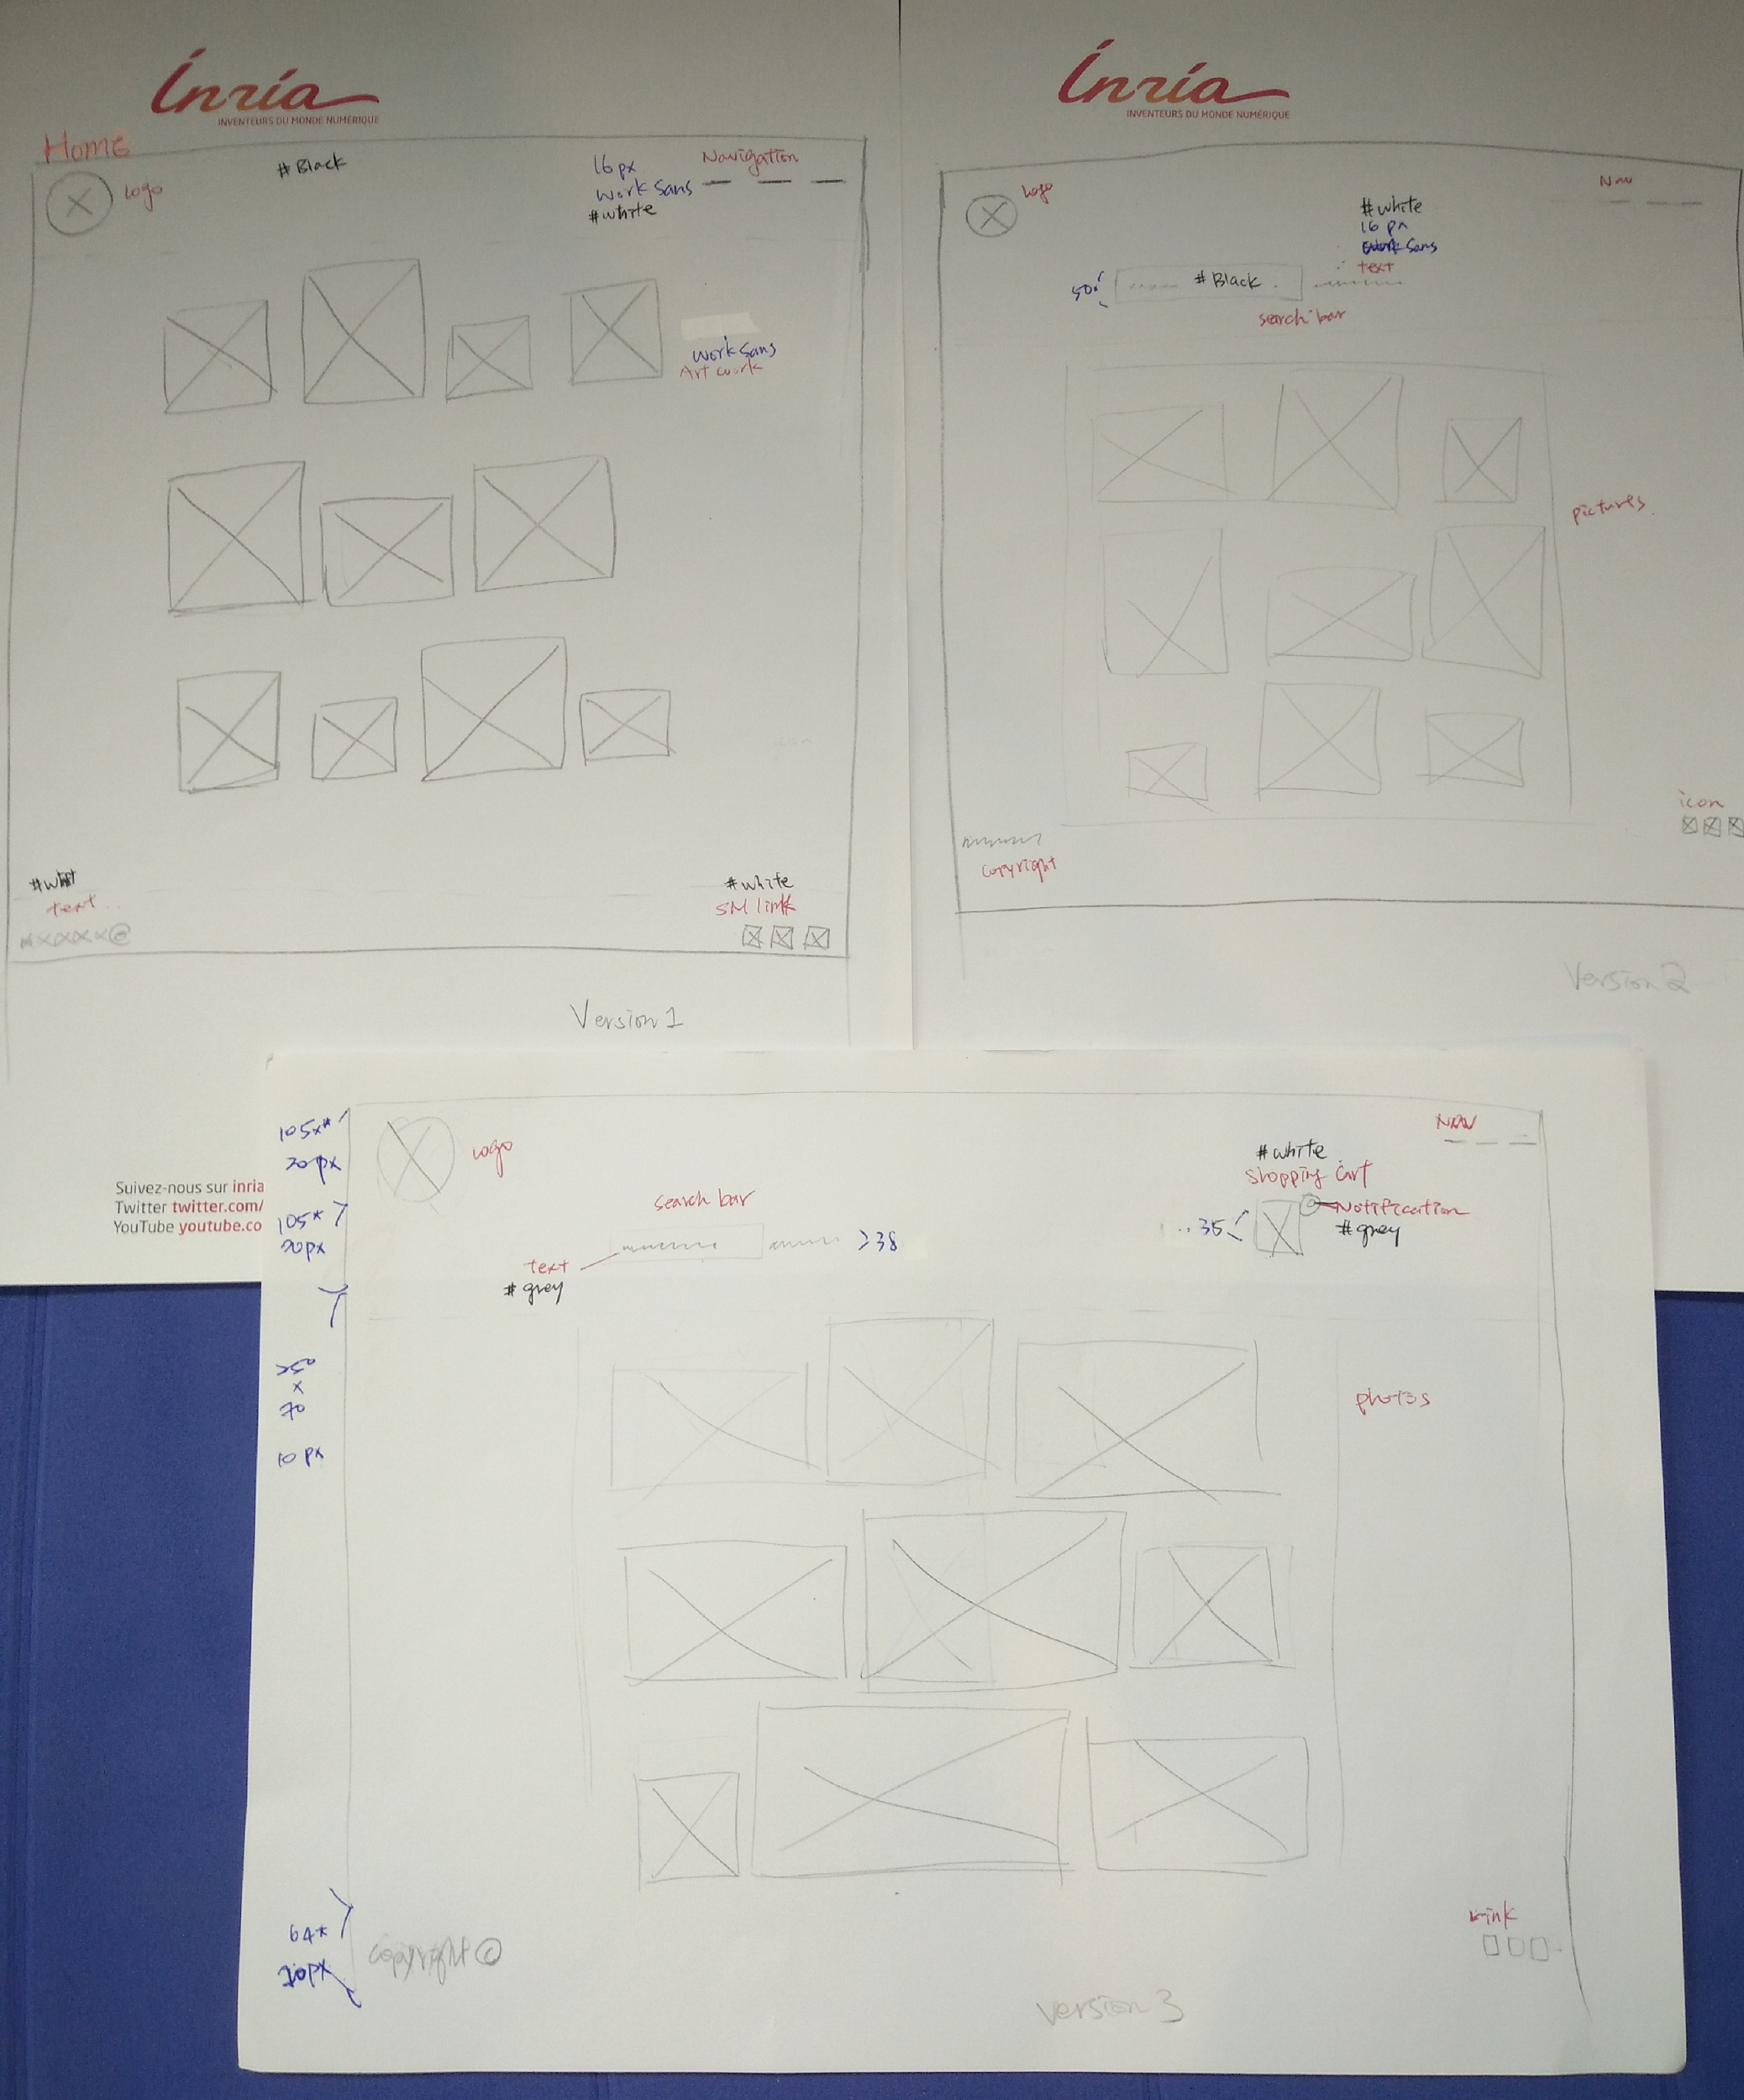 Inria
INVENTEURS DU MONDE NUMÉRIQUE
Home
# Black
16px
Work Sans
# white
Navigation
Logo
Work Sans
Art work
text
# white
SM link
Version 1
Inria
INVENTEURS DU MONDE NUMÉRIQUE
Logo
Nav
# white
16 px
Sans
text
50
# Black
search bar
pictures
icon
copyright
Version 2
Suivez-nous sur inria
Twitter twitter.com/
YouTube youtube.co
105x*
20px
105*
20px
x
70
10 px
64*
Logo
search bar
text
# grey
38
# white
shopping cart
35
Notification
# grey
NAV
photos
Link
copyright ©
Version 3